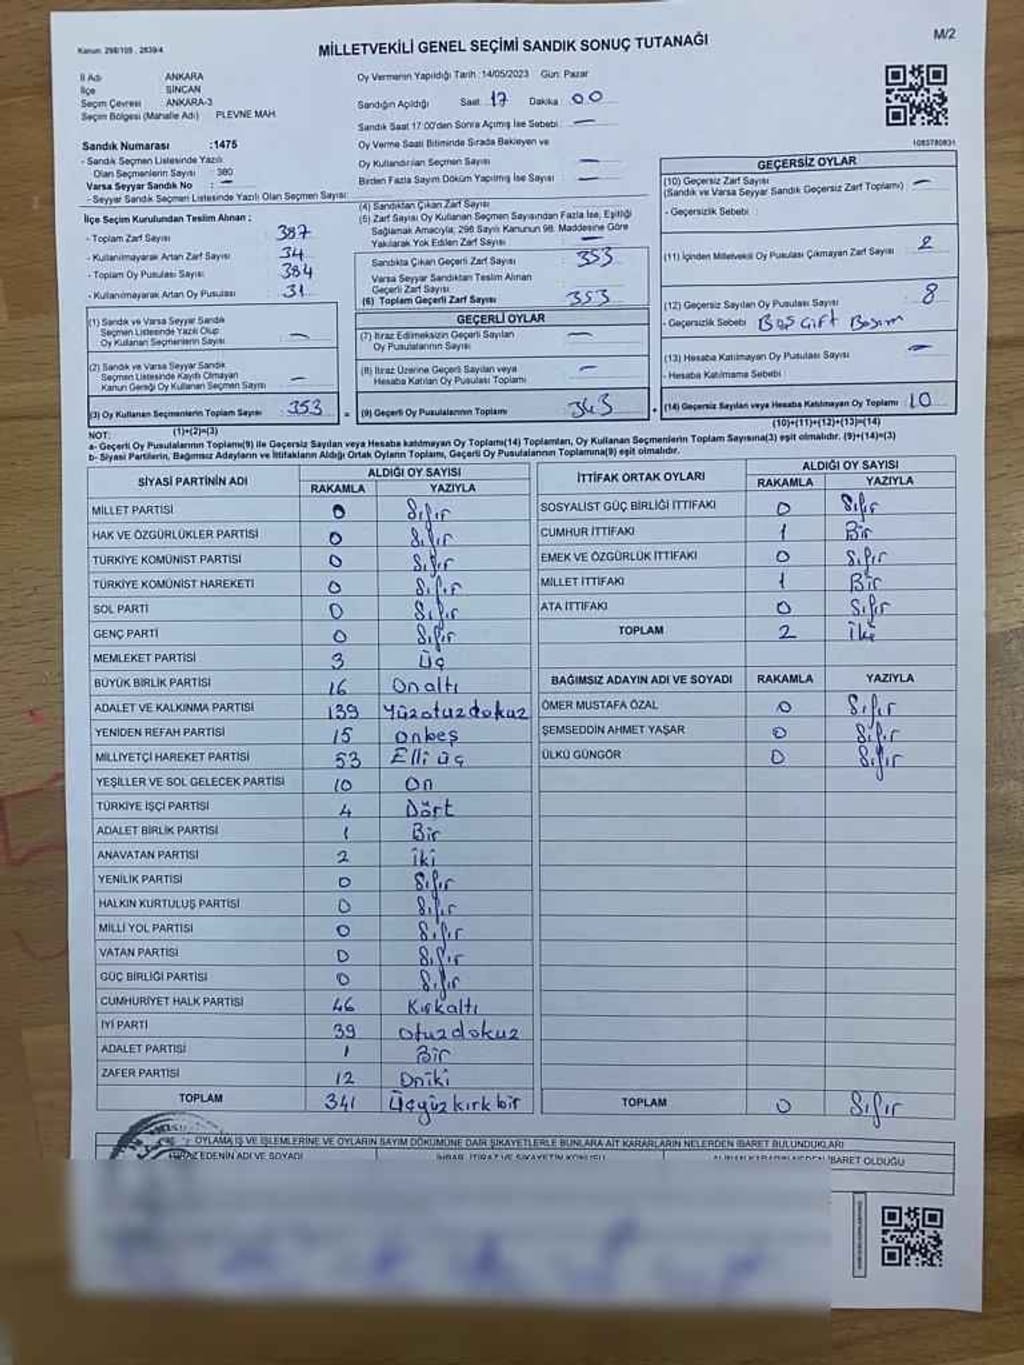 Kanun: 298/105 , 2839/4
MİLLETVEKİLİ GENEL SEÇİMİ SANDIK SONUÇ TUTANAĞI
M/2
İl Adı ANKARA
İlçe SİNCAN
Seçim Çevresi ANKARA-3
Seçim Bölgesi (Mahalle Adı) PLEVNE MAH.
Sandık Numarası :1475
- Sandık Seçmen Listesinde Yazılı
Olan Seçmenlerin Sayısı : 380
Varsa Seyyar Sandık No : —
- Seyyar Sandık Seçmen Listesinde Yazılı Olan Seçmen Sayısı:
İlçe Seçim Kurulundan Teslim Alınan :
- Toplam Zarf Sayısı 387
- Kullanılmayarak Artan Zarf Sayısı 34
- Toplam Oy Pusulası Sayısı 384
- Kullanılmayarak Artan Oy Pusulası 31
(1) Sandık ve Varsa Seyyar Sandık
Seçmen Listesinde Yazılı Olup
Oy Kullanan Seçmenlerin Sayısı —
(2) Sandık ve Varsa Seyyar Sandık
Seçmen Listesinde Kayıtlı Olmayan
Kanun Gereği Oy Kullanan Seçmen Sayısı —
(3) Oy Kullanan Seçmenlerin Toplam Sayısı : 353
(1)+(2)=(3)
Oy Vermenin Yapıldığı Tarih :14/05/2023 Gün: Pazar
Sandığın Açıldığı Saat 17 Dakika 00
Sandık Saat 17:00'den Sonra Açılmış İse Sebebi : —
Oy Verme Saati Bitiminde Sırada Bekleyen ve
Oy Kullandırılan Seçmen Sayısı —
Birden Fazla Sayım Döküm Yapılmış İse Sayısı —
(4) Sandıktan Çıkan Zarf Sayısı
(5) Zarf Sayısı Oy Kullanan Seçmen Sayısından Fazla İse, Eşitliği
Sağlamak Amacıyla; 298 Sayılı Kanunun 98. Maddesine Göre
Yakılarak Yok Edilen Zarf Sayısı —
Sandıkta Çıkan Geçerli Zarf Sayısı 353
Varsa Seyyar Sandıktan Teslim Alınan
Geçerli Zarf Sayısı
(6) Toplam Geçerli Zarf Sayısı 353
GEÇERLİ OYLAR
(7) İtiraz Edilmeksizin Geçerli Sayılan
Oy Pusulalarının Sayısı —
(8) İtiraz Üzerine Geçerli Sayılan veya
Hesaba Katılan Oy Pusulası Toplamı —
= (9) Geçerli Oy Pusulalarının Toplamı 343
1083780831
GEÇERSİZ OYLAR
(10) Geçersiz Zarf Sayısı
(Sandık ve Varsa Seyyar Sandık Geçersiz Zarf Toplamı) —
- Geçersizlik Sebebi :
(11) İçinden Milletvekili Oy Pusulası Çıkmayan Zarf Sayısı 2
(12) Geçersiz Sayılan Oy Pusulası Sayısı 8
- Geçersizlik Sebebi Boş Çift Basım
(13) Hesaba Katılmayan Oy Pusulası Sayısı —
- Hesaba Katılmama Sebebi :
+ (14) Geçersiz Sayılan veya Hesaba Katılmayan Oy Toplamı 10
(10)+(11)+(12)+(13)=(14)
NOT:
a- Geçerli Oy Pusulalarının Toplamı(9) ile Geçersiz Sayılan veya Hesaba katılmayan Oy Toplamı(14) Toplamları, Oy Kullanan Seçmenlerin Toplam Sayısına(3) eşit olmalıdır. (9)+(14)=(3)
b- Siyasi Partilerin, Bağımsız Adayların ve İttifakların Aldığı Ortak Oyların Toplamı, Geçerli Oy Pusulalarının Toplamına(9) eşit olmalıdır.
SİYASİ PARTİNİN ADI ALDIĞI OY SAYISI
RAKAMLA YAZIYLA
MİLLET PARTİSİ 0 Sıfır
HAK VE ÖZGÜRLÜKLER PARTİSİ 0 Sıfır
TÜRKİYE KOMÜNİST PARTİSİ 0 Sıfır
TÜRKİYE KOMÜNİST HAREKETİ 0 Sıfır
SOL PARTİ 0 Sıfır
GENÇ PARTİ 0 Sıfır
MEMLEKET PARTİSİ 3 Üç
BÜYÜK BİRLİK PARTİSİ 16 Onaltı
ADALET VE KALKINMA PARTİSİ 139 Yüzotuzdokuz
YENİDEN REFAH PARTİSİ 15 Onbeş
MİLLİYETÇİ HAREKET PARTİSİ 53 Elli üç
YEŞİLLER VE SOL GELECEK PARTİSİ 10 On
TÜRKİYE İŞÇİ PARTİSİ 4 Dört
ADALET BİRLİK PARTİSİ 1 Bir
ANAVATAN PARTİSİ 2 İki
YENİLİK PARTİSİ 0 Sıfır
HALKIN KURTULUŞ PARTİSİ 0 Sıfır
MİLLİ YOL PARTİSİ 0 Sıfır
VATAN PARTİSİ 0 Sıfır
GÜÇ BİRLİĞİ PARTİSİ 0 Sıfır
CUMHURİYET HALK PARTİSİ 46 Kırkaltı
İYİ PARTİ 39 Otuzdokuz
ADALET PARTİSİ 1 Bir
ZAFER PARTİSİ 12 Oniki
TOPLAM 341 Üçyüzkırkbir
İTTİFAK ORTAK OYLARI ALDIĞI OY SAYISI
RAKAMLA YAZIYLA
SOSYALİST GÜÇ BİRLİĞİ İTTİFAKI 0 Sıfır
CUMHUR İTTİFAKI 1 Bir
EMEK VE ÖZGÜRLÜK İTTİFAKI 0 Sıfır
MİLLET İTTİFAKI 1 Bir
ATA İTTİFAKI 0 Sıfır
TOPLAM 2 İki
BAĞIMSIZ ADAYIN ADI VE SOYADI RAKAMLA YAZIYLA
ÖMER MUSTAFA ÖZAL 0 Sıfır
ŞEMSEDDİN AHMET YAŞAR 0 Sıfır
ÜLKÜ GÜNGÖR 0 Sıfır
TOPLAM 0 Sıfır
OYLAMA İŞ VE İŞLEMLERİNE VE OYLARIN SAYIM DÖKÜMÜNE DAİR ŞİKAYETLERLE BUNLARA AİT KARARLARIN NELERDEN İBARET BULUNDUKLARI
EDENİN ADI VE SOYADI İHBAR, İTİRAZ VE ŞİKAYETİN KONUSU ALINAN KARARIN NEDEN İBARET OLDUĞU